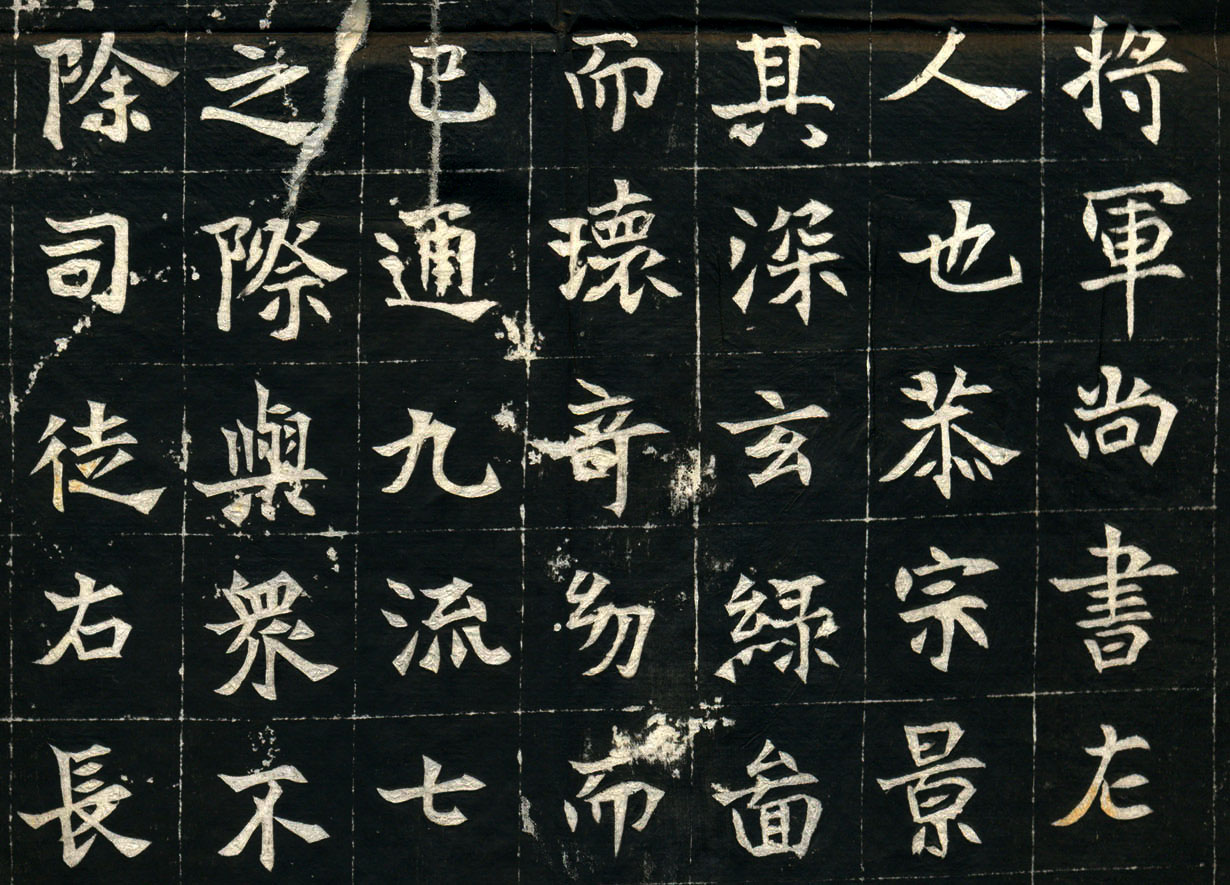 將軍尚書左
人也恭宗景
其深玄綠啚
而瓌竒幼而
已通九流七
之際與眾不
除司徒右長